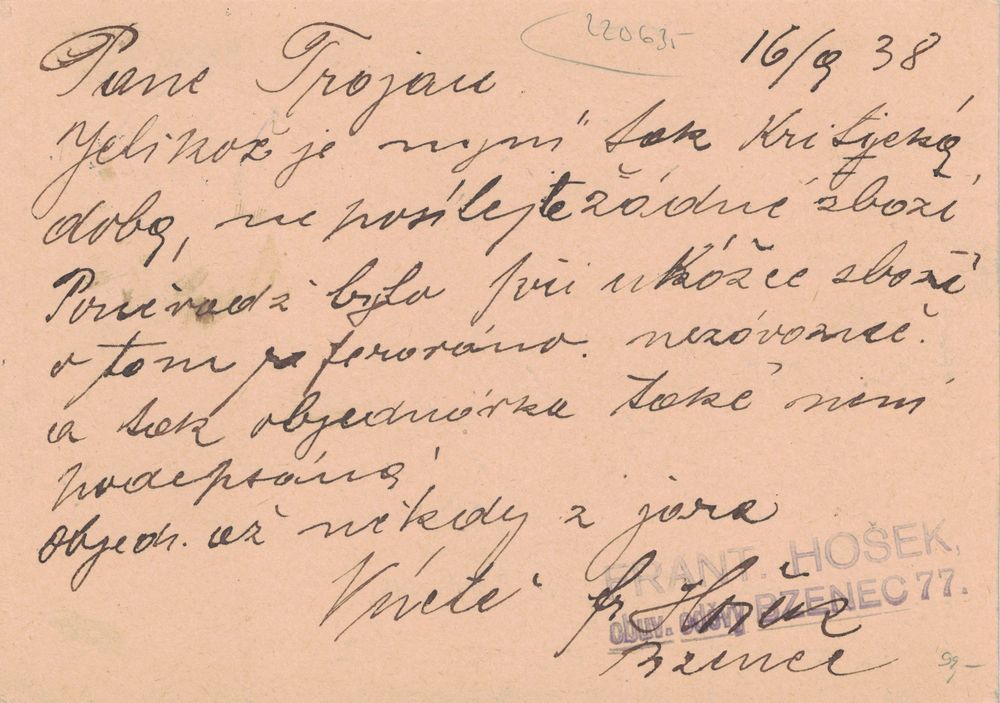 220635
16/9 38
Pane Trojan
Jelikož je nyni tak Kritycká
doba, neposílejte žádné zboží
Poněvadž bylo při ukážce zboží
o tom referováno. nezávazně.
a tak objednávka také není
podepsáná,
objedn. až někdy z jara
V úctě fr Hošek
Bzenec
FRANT. HOŠEK,
obuv. oděvy BZENEC 77.
99,-